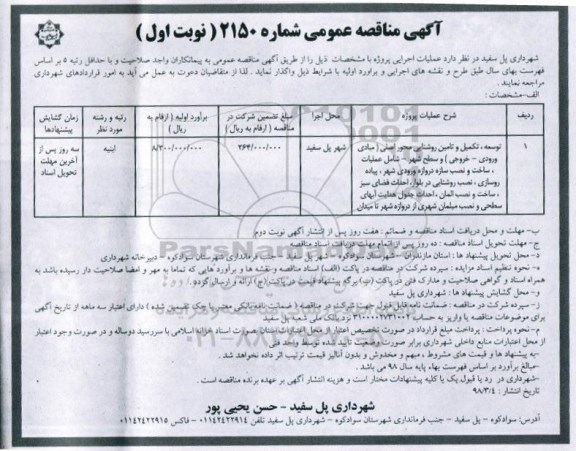 آگهی مناقصه عمومی شماره ۲۱۵۰ ( نوبت اول )
شهرداری پل سفید در نظر دارد عملیات اجرایی پروژه با مشخصات ذیل را از طریق آگهی مناقصه عمومی به پیمانکاران واجد صلاحیت و با حداقل رتبه ۵ بر اساس
فهرست بهای سال طبق طرح و نقشه های اجرایی و برآورد اولیه با شرایط ذیل واگذار نماید . لذا از متقاضیان دعوت به عمل می آید به امور قراردادهای شهرداری
مراجعه نمایند .
الف-مشخصات :
ردیف شرح عملیات پروژه محل اجرا مبلغ تضمین شرکت در مناقصه ( ارقام به ریال ) برآورد اولیه ( ارقام به ریال ) رتبه و رشته مورد نظر زمان گشایش پیشنهادها
۱ توسعه ، تکمیل و تامین روشنایی محور اصلی ( مبادی شهر پل سفید ۲۶۴/۰۰۰/۰۰۰ ۸/۲۰۰/۰۰۰/۰۰۰ ابنیه سه روز پس از
ورودی - خروجی ) و سطح شهر - شامل عملیات آخرین مهلت
، ساخت و نصب سازه دروازه ورودی شهر ، پیاده تحویل اسناد
روسازی ، نصب روشنایی در بلوار ، احداث فضای سبز
، ساخت و نصب المان ، احداث جدول هدایت آبهای
سطحی و نصب مبلمان شهری از دروازه شهر تا میدان
ب- مهلت و محل دریافت اسناد مناقصه و ضمائم : هفت روز پس از انتشار آگهی نوبت دوم
ج- مهلت تحویل اسناد مناقصه : ده روز پس از اتمام مهلت دریافت اسناد مناقصه
د- محل تحویل پیشنهاد ها : استان مازندران - شهرستان سوادکوه - شهر پل سفید - جنب فرمانداری شهرستان سوادکوه - دبیرخانه شهرداری
ه- نحوه تنظیم اسناد مزایده : سپرده شرکت در مناقصه در پاکت (الف) اسناد مناقصه و نقشه ها و برآورد هایی که تماما به مهر و امضا صلاحیت دار رسیده باشد به
همراه اسناد و گواهی صلاحیت و مدارک فنی در پاکت (ب) برگه پیشنهاد قیمت در پاکت (ج) ارائه و ارسال گردد.
و- محل گشایش پیشنهاد ها : شهرداری پل سفید
ز- سپرده شرکت در مناقصه : ضمانت نامه قابل قبول جهت شرکت در مناقصه ( ضمانت نامه بانکی معتبر یا چک تضمین شده ) دارای اعتبار سه ماهه از تاریخ آگهی
برای موضوعات مناقصه یا واریز به حساب نزد بانک ملی شعبه پل سفید
م- نحوه پرداخت : پرداخت مبلغ قرارداد در صورت تخصیص اعتبار از محل اعتبارات استان بصورت اسناد خزانه اسلامی با سررسید دوساله و در صورت وجود اعتبار
از محل اعتبارات منابع داخلی شهرداری برابر صورت وضعیت تایید شده توسط واحد فنی
-به پیشنهاد ها و قیمت های مشروط ، مبهم و مخدوش و بدون آنالیز قیمت ترتیب اثر داده نخواهد شد .
-مبالغ برآورد بر اساس فهرست بهاء پایه سال ۹۸ می باشد .
-شهرداری در رد یا قبول یک یا کلیه پیشنهادات مختار است و هزینه انتشار آگهی بر عهده برنده مناقصه است .
تاریخ انتشار : ۹۸/۳/۴
شهرداری پل سفید - حسن یحیی پور
آدرس: سوادکوه - پل سفید - جنب فرمانداری شهرستان سوادکوه - شهرداری پل سفید تلفن ۰۱۱۴۲۴۲۲۹۱۴ - فاکس ۰۱۱۴۲۴۲۲۹۱۵